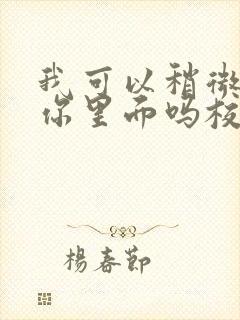 我可以稍微
你里面吗校
楊春節